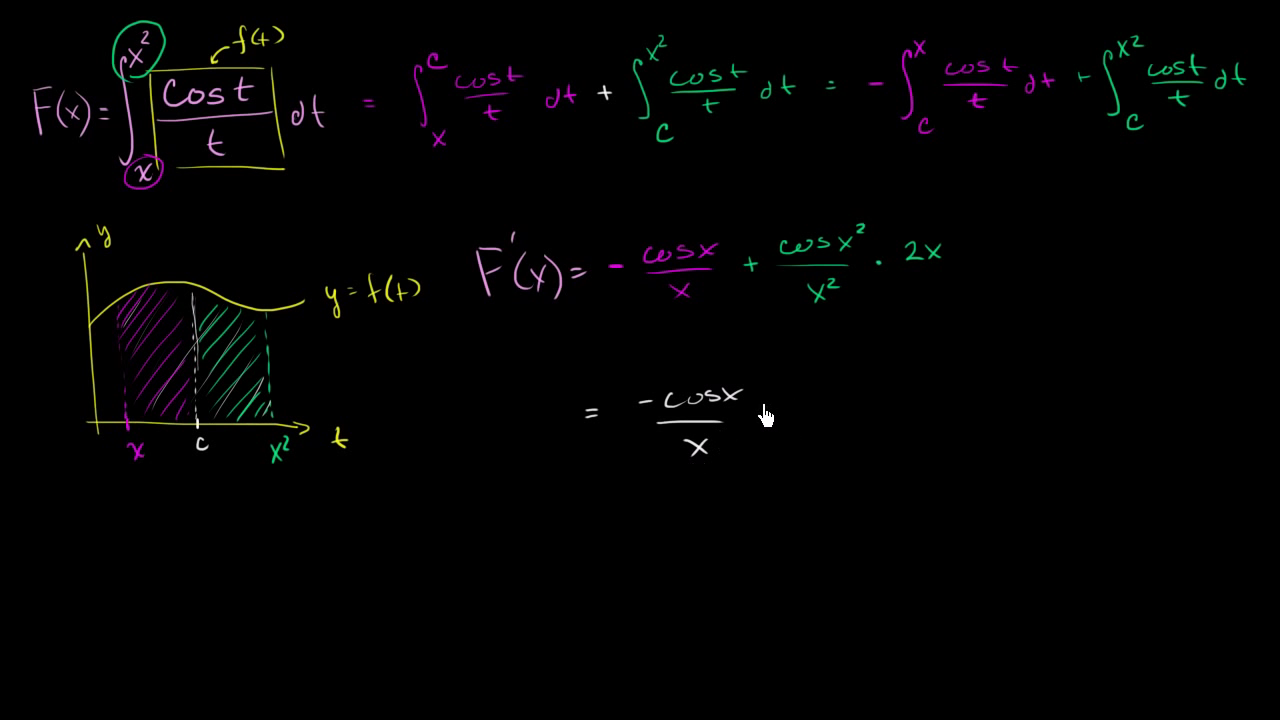 f(t)
F(x) = ∫_x^{x²} cos t / t dt = ∫_x^c cos t / t dt + ∫_c^{x²} cos t / t dt = - ∫_c^x cos t / t dt + ∫_c^{x²} cos t / t dt
y
y = f(t)
x c x² t
F'(x) = - cos x / x + cos x² / x² · 2x
= -cos x / x